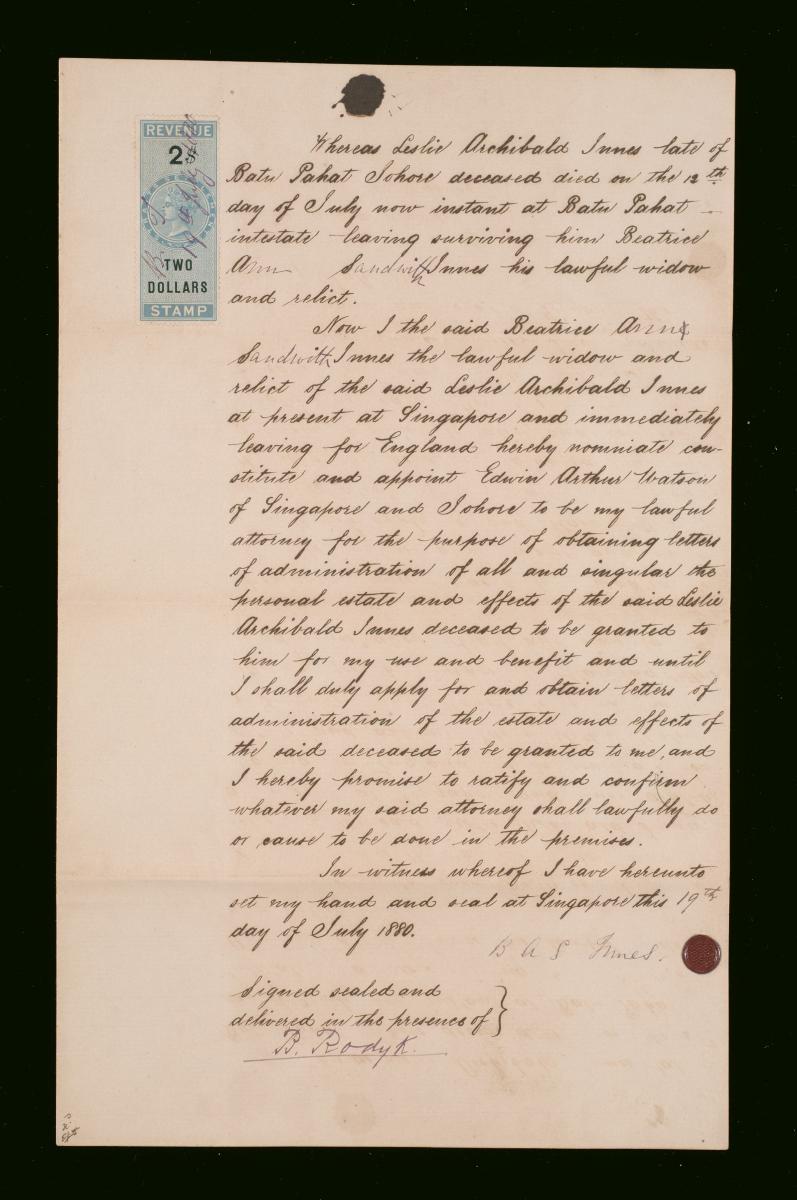 REVENUE
2$
TWO
DOLLARS
STAMP
Whereas Leslie Archibald Innes late of
Batu Pahat Johore deceased died on the 12th
day of July now instant at Batu Pahat
intestate leaving surviving him Beatrice
Ann Sandwith Innes his lawful widow
and relict.
Now I the said Beatrice Ann
Sandwith Innes the lawful widow and
relict of the said Leslie Archibald Innes
at present at Singapore and immediately
leaving for England hereby nomniate con-
stitute and appoint Edwin Arthur Watson
of Singapore and Johore to be my lawful
attorney for the purpose of obtaining letters
of administration of all and singular the
personal estate and effects of the said Leslie
Archibald Innes deceased to be granted to
him for my use and benefit and until
I shall duly apply for and obtain letters of
administration of the estate and effects of
the said deceased to be granted to me, and
I hereby promise to ratify and confirm
whatever my said attorney shall lawfully do
or cause to be done in the premises.
In witness whereof I have hereunto
set my hand and seal at Singapore this 19th
day of July 1880.
B A S Innes.
Signed sealed and
delivered in the presence of
B. Rodyk.